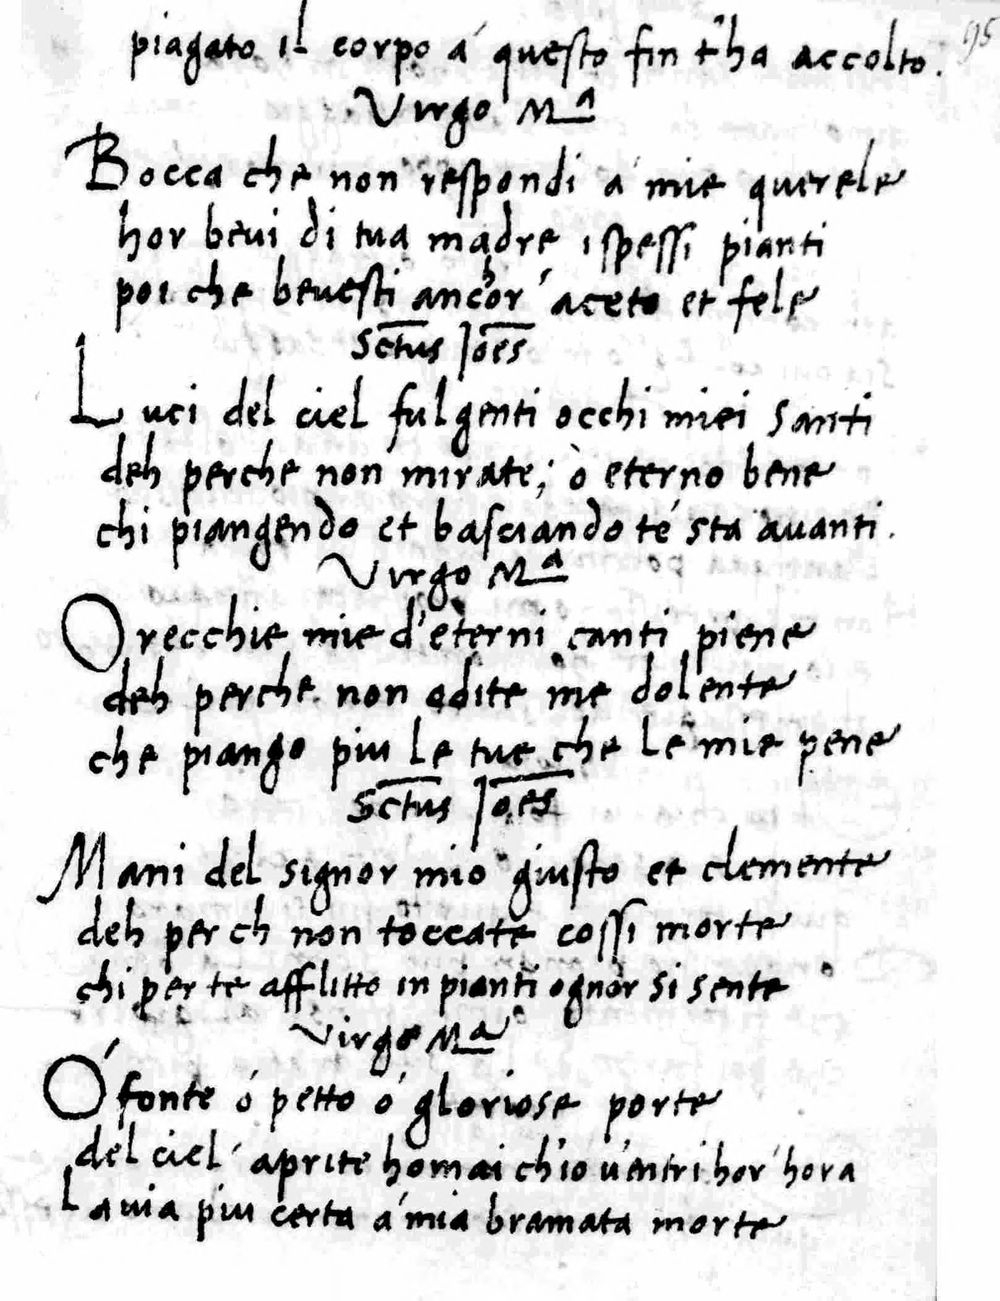 95
piagato il corpo á questo fin t'ha accolto.
Virgo Mª
Bocca che non respondi á mie querele
hor beui di tua madre i spessi pianti
poi che beuesti anchor aceto et fele
Sctus Joes
Luci del ciel fulgenti occhi miei santi
deh perche non mirate; ò eterno bene
chi piangendo et basciando te sta auanti.
Virgo Mª
Orecchie mie d'eterni canti piene
deh perche non odite me dolente
che piango piu le tue che le mie pene
Sctus Joes
Mani del signor mio giusto et clemente
deh perch non toccate cossi morte
chi per te afflitto in pianti ognor si sente
Virgo Mª
Ó fonte ó petto ó gloriose porte
del ciel aprite homai chio u'entri hor hora
La uia piu certa á mia bramata morte